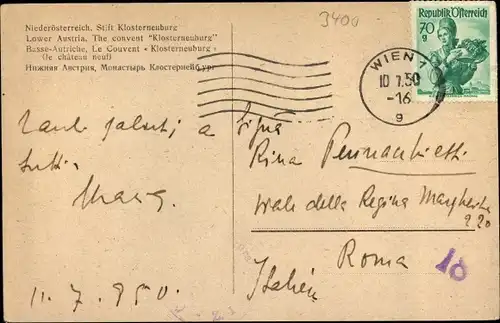 3400
Niederösterreich. Stift Klosterneuburg
Lower Austria. The convent "Klosterneuburg"
Basse-Autriche, Le Couvent «Klosterneuburg»
(le château neuf)
Нижняя Австрия, Монастырь Клостернейбург
Republik Österreich
70
g
WIEN 1
10 7.50
-16
g
Tanti saluti a
tutti.
11.7.950.
Sig.ra
Rina
Viale della Regina Margherita
220
Roma
Italien
10